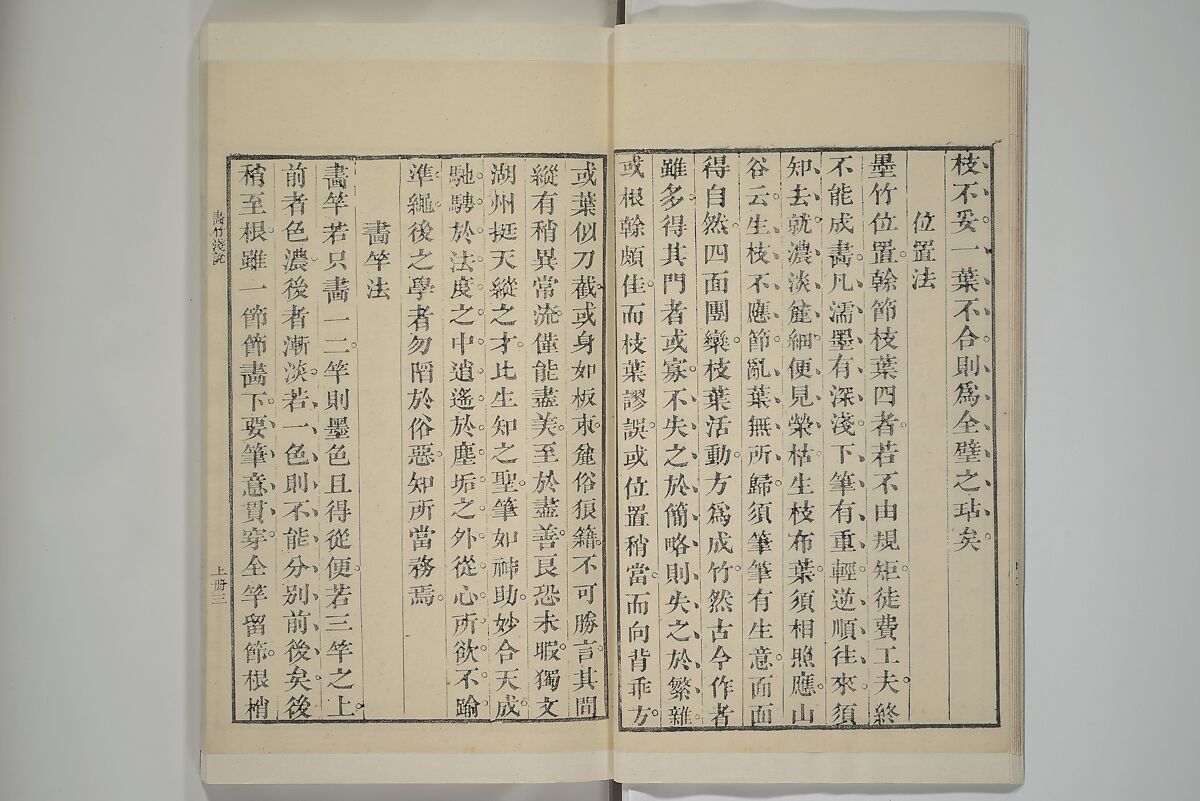 枝不妥一葉不合則爲全璧之玷矣。
位置法
墨竹位置。榦節枝葉四者。若不由規矩。徒費工夫。終
不能成畵。凡濡墨有深淺。下筆有重輕。逆順往來。須
知去就。濃淡麄細。便見榮枯。生枝布葉。須相照應。山
谷云。生枝不應節。亂葉無所歸。須筆筆有生意。面面
得自然。四面團欒。枝葉活動。方爲成竹。然古今作者
雖多。得其門者或寡。不失之於簡略。則失之於繁雜。
或根榦頗佳。而枝葉謬誤。或位置稍當。而向背乖方。
或葉似刀截。或身如板束。麄俗狼籍。不可勝言。其間
縱有稍異常流。僅能盡美。至於盡善。良恐未暇。獨文
湖州挺天縱之才。比生知之聖。筆如神助。妙合天成。
馳騁於法度之中。逍遙於塵垢之外。從心所欲。不踰
準繩。後之學者。勿䧟於俗惡。知所當務焉。
畵竿法
畵竿若只畵一二竿。則墨色且得從便。若三竿之上。
前者色濃。後者漸淡。若一色則不能分別前後矣。後
稍至根。雖一節節畵下。要筆意貫穿。全竿留節。根梢
畵竹淺說
上册三